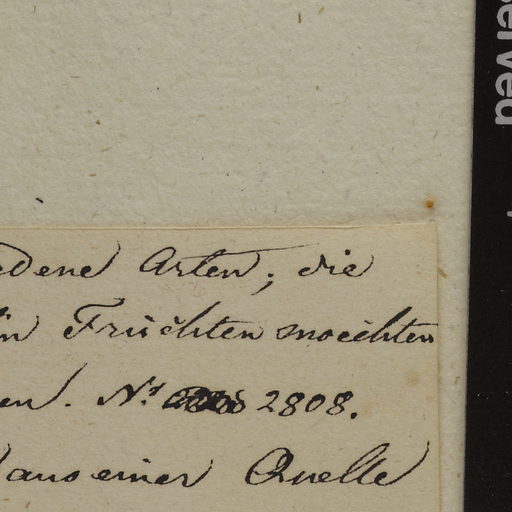 edene Arten; die
in Früchten moechten
en. Nr. 2808.
aus einer Quelle
erved